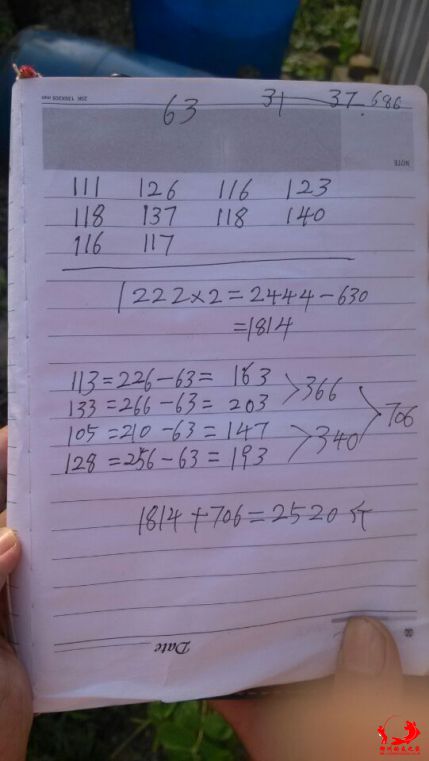 25K 130X205 mm
63 31—37.686
NOTE
111 126 116 123
118 137 118 140
116 117
1222×2=2444-630
=1814
113=226-63=163
133=266-63=203
366
105=210-63=147
128=256-63=193
340
706
1814+706=2520斤
Date